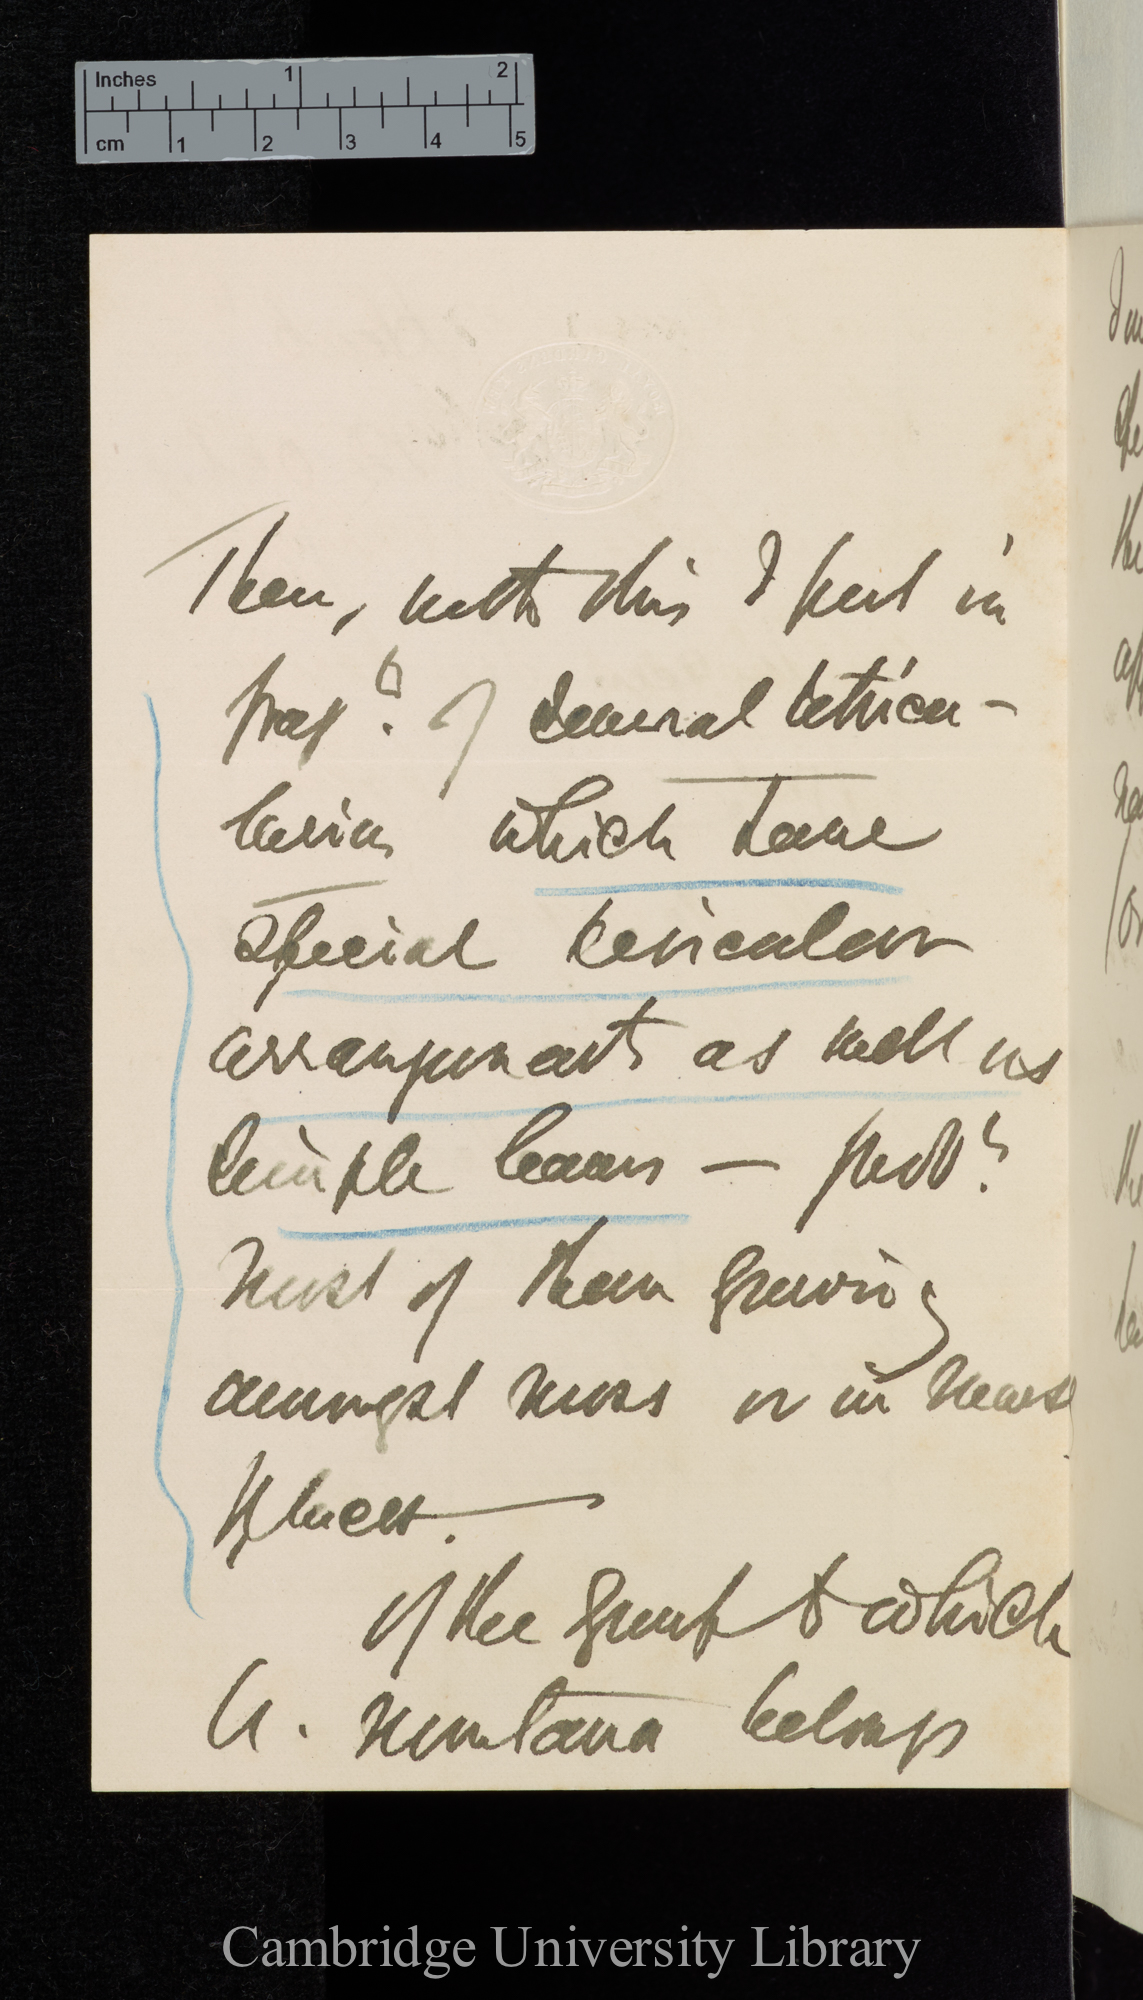 Inches 1 2
cm 1 2 3 4 5
Then, with this I put in
frag.ts of several Utricu-
larias which have
special vesicular
arrangements as well as
simple leaves — prob.y
most of them growing
amongst moss or in
places. —
of the group to which
U. montana belongs
Cambridge University Library